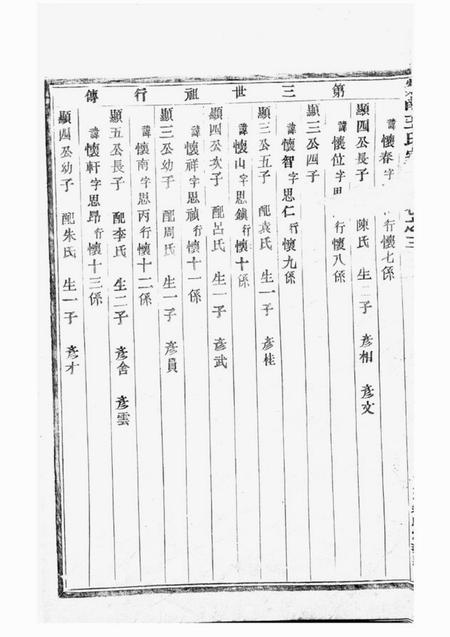 第三世祖行傳
諱懷春字 行懷七係
顯四公長子 陳氏 生二子 彥相 彥文
諱懷位字思 行懷八係
顯三公四子
諱懷智字思仁行懷九係
顯三公五子 配袁氏 生一子 彥桂
諱懷山字思鎮行懷十係
顯四公次子 配呂氏 生一子 彥武
諱懷祥字思禎行懷十一係
顯三公幼子 配周氏 生一子 彥員
諱懷南字思丙行懷十二係
顯五公長子 配李氏 生二子 彥舍 彥雲
諱懷軒字思昂行懷十三係
顯四公幼子 配朱氏 生一子 彥才